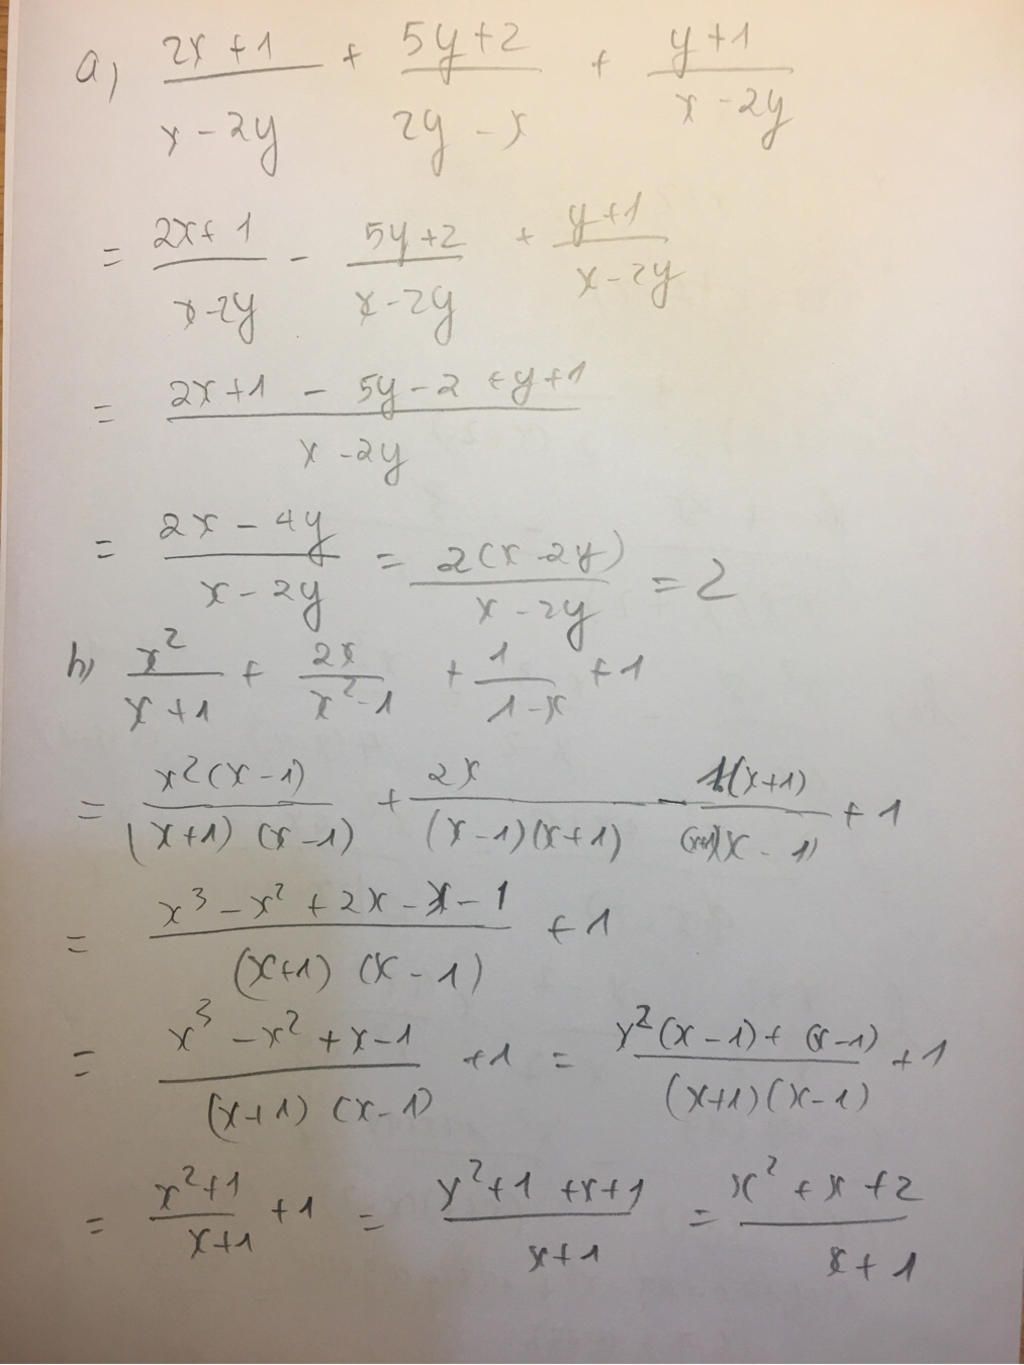 a) (2x+1)/(x-2y) + (5y+2)/(2y-x) + (y+1)/(x-2y)
= (2x+1)/(x-2y) - (5y+2)/(x-2y) + (y+1)/(x-2y)
= (2x+1 - 5y-2 +y+1)/(x-2y)
= (2x-4y)/(x-2y) = 2(x-2y)/(x-2y) = 2
b) x²/(x+1) + 2x/(x²-1) + 1/(1-x) +1
= x²(x-1)/((x+1)(x-1)) + 2x/((x-1)(x+1)) - 1(x+1)/((x+1)(x-1)) +1
= (x³-x²+2x-x-1)/((x+1)(x-1)) +1
= (x³-x²+x-1)/((x+1)(x-1)) +1 = (x²(x-1)+(x-1))/((x+1)(x-1)) +1
= (x²+1)/(x+1) +1 = (x²+1+x+1)/(x+1) = (x²+x+2)/(x+1)